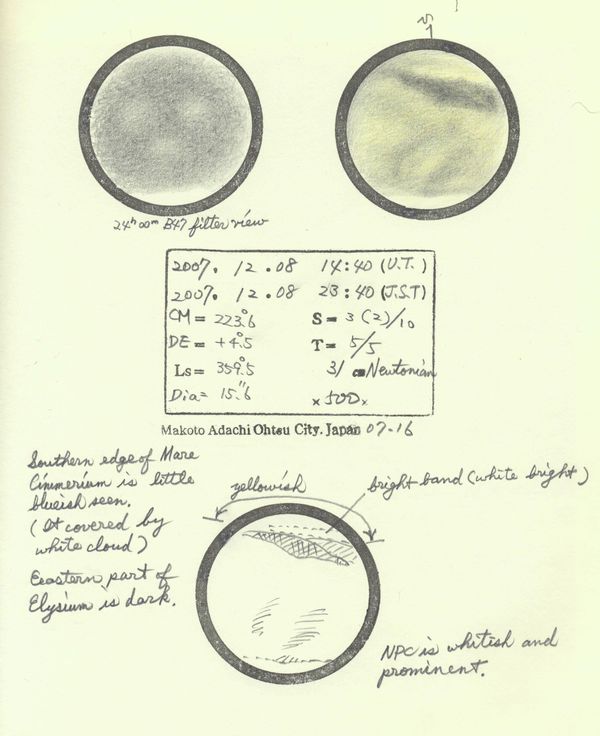 S
24ʰ00ᵐ B47 filter view
2007. 12.08 14:40 (U.T.)
2007. 12.08 23:40 (J.S.T)
CM= 223.°6 S= 3(2)/10
DE= +4.°5 T= 5/5
Ls= 359.°5 31 cm Newtonian
Dia= 15."6 ×500×
Makoto Adachi Ohtsu City. Japan 07-16
Southern edge of Mare
Cimmerium is little
blueish seen.
(It covered by
white cloud)
Eeastern part of
Elysium is dark.
yellowish
bright band (white bright)
NPC is whitish and
prominent.